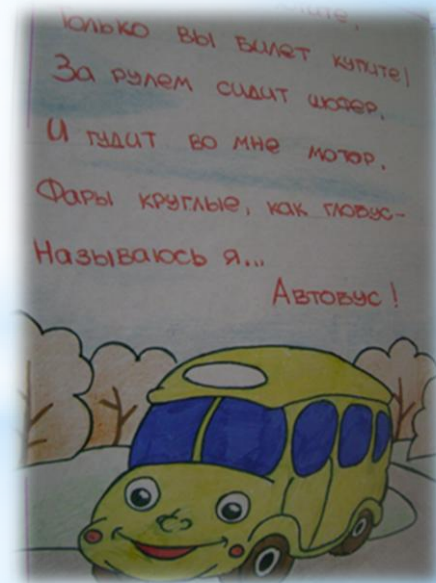 Только вы билет купите!
За рулем сидит шофер,
И гудит во мне мотор.
Фары круглые, как глобус-
Называюсь я...
Автобус!